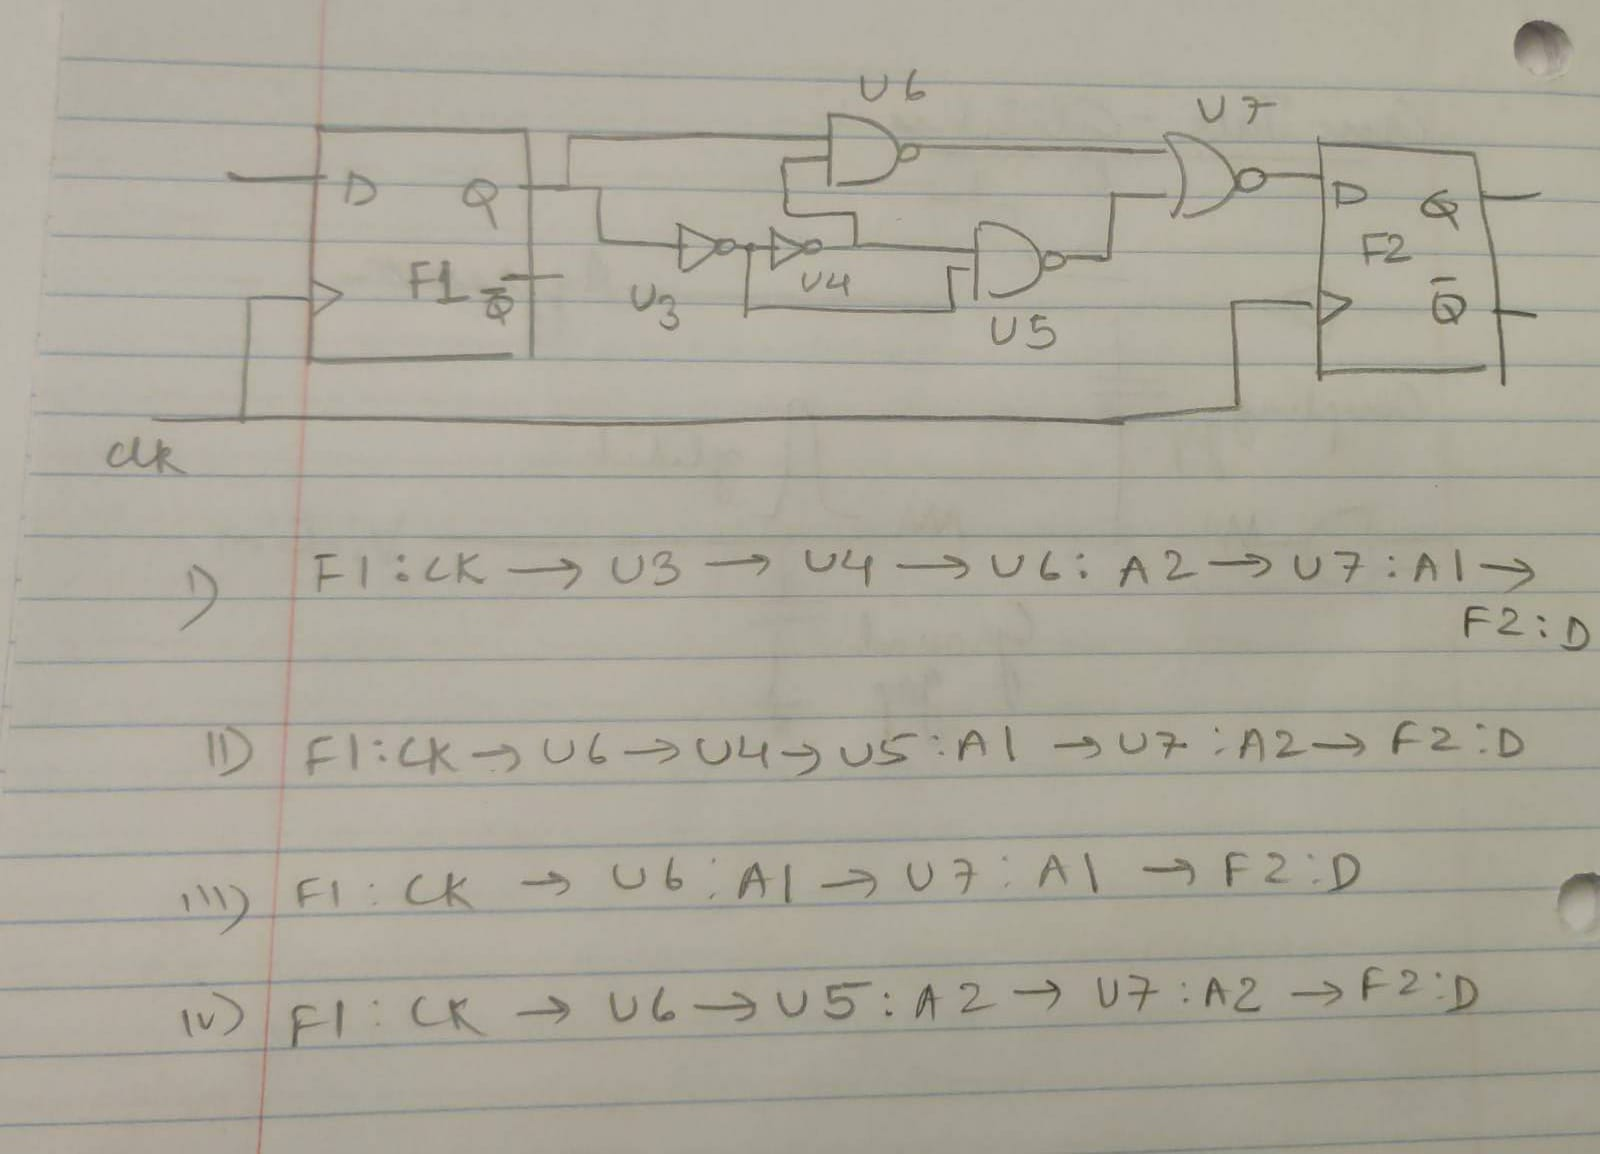 U6
U7
D Q
D Q
F1 Q̅
F2
U3
U4
U5
Q̅
clk
I) F1:CK → U3 → U4 → U6: A2 → U7:A1 →
F2:D
II) F1:CK → U6 → U4 → U5:A1 → U7:A2 → F2:D
III) F1:CK → U6:A1 → U7:A1 → F2:D
IV) F1:CK → U6 → U5:A2 → U7:A2 → F2:D